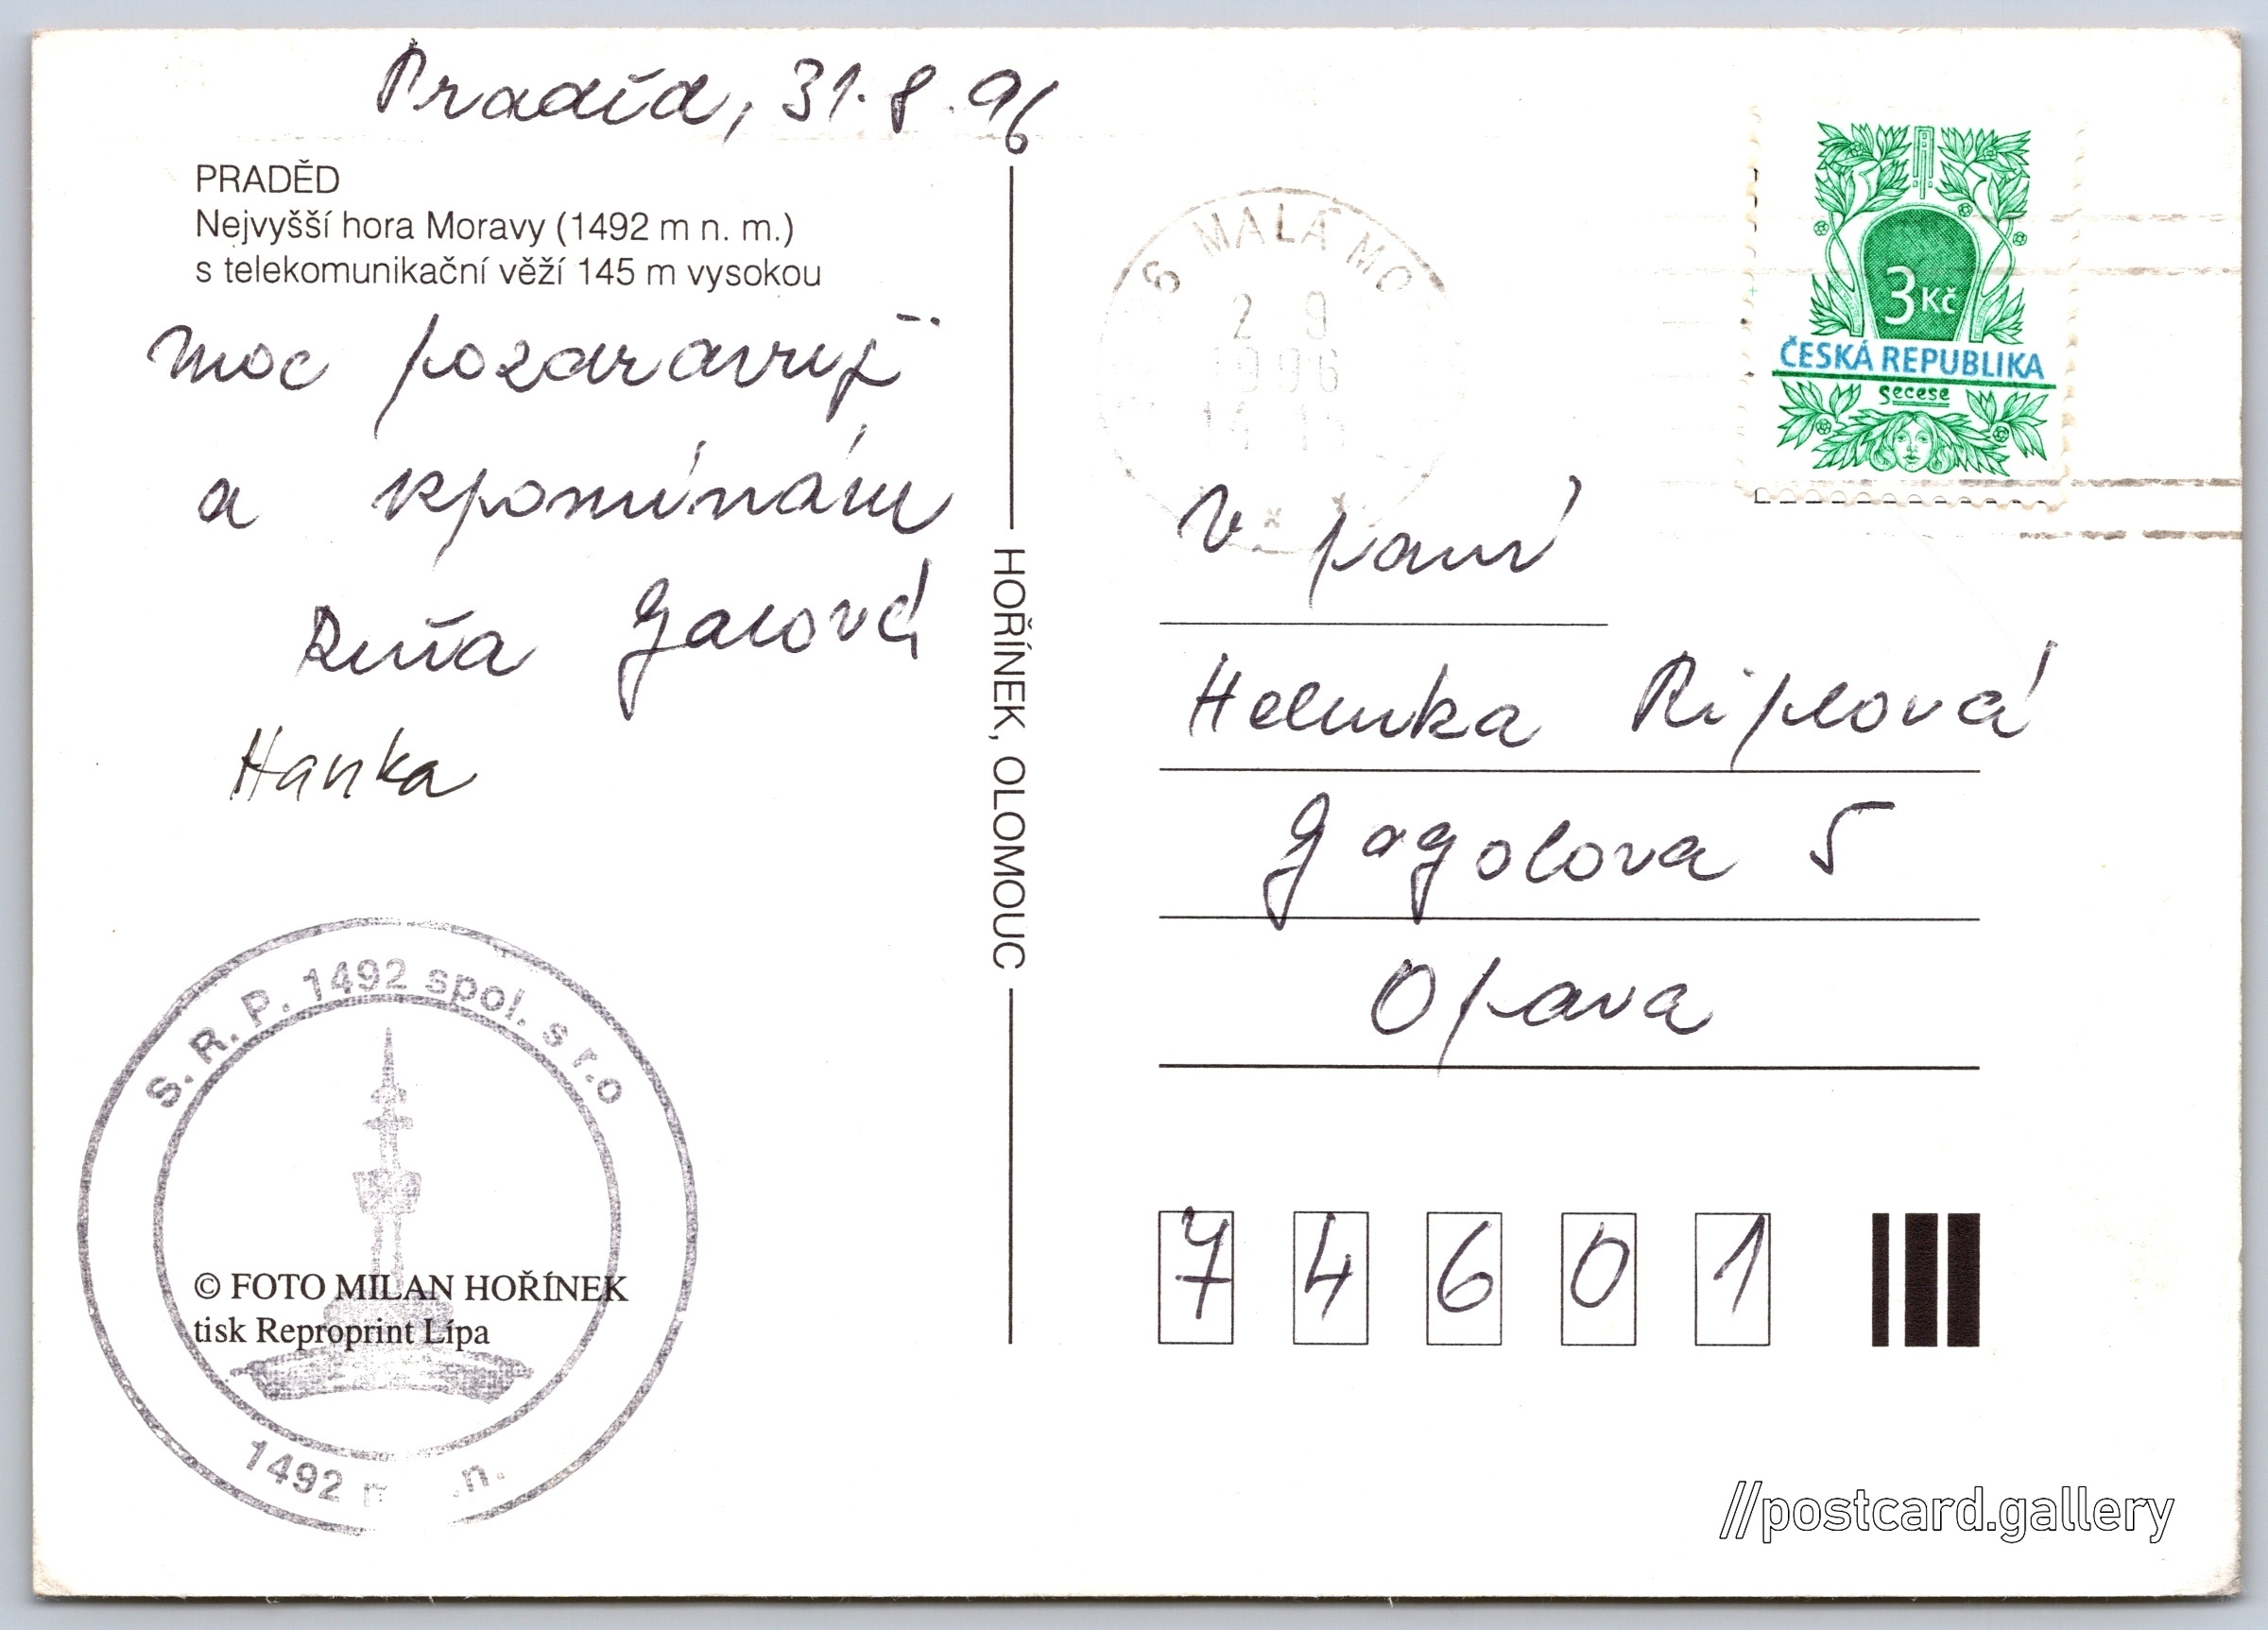 Praděd, 31.8.96
PRADĚD
Nejvyšší hora Moravy (1492 m n. m.)
s telekomunikační věží 145 m vysokou
moc pozdravuji
a vzpomínám
Hanka
S. R. P. 1492 spol. s r.o
© FOTO MILAN HOŘÍNEK
tisk Reproprint Lípa
1492 m n.
HOŘÍNEK, OLOMOUC
6 MALÁ MO
2 9
1996
3 Kč
ČESKÁ REPUBLIKA
Secese
V paní
Helenka Riplová
Gogolova 5
Opava
74601
//postcard.gallery